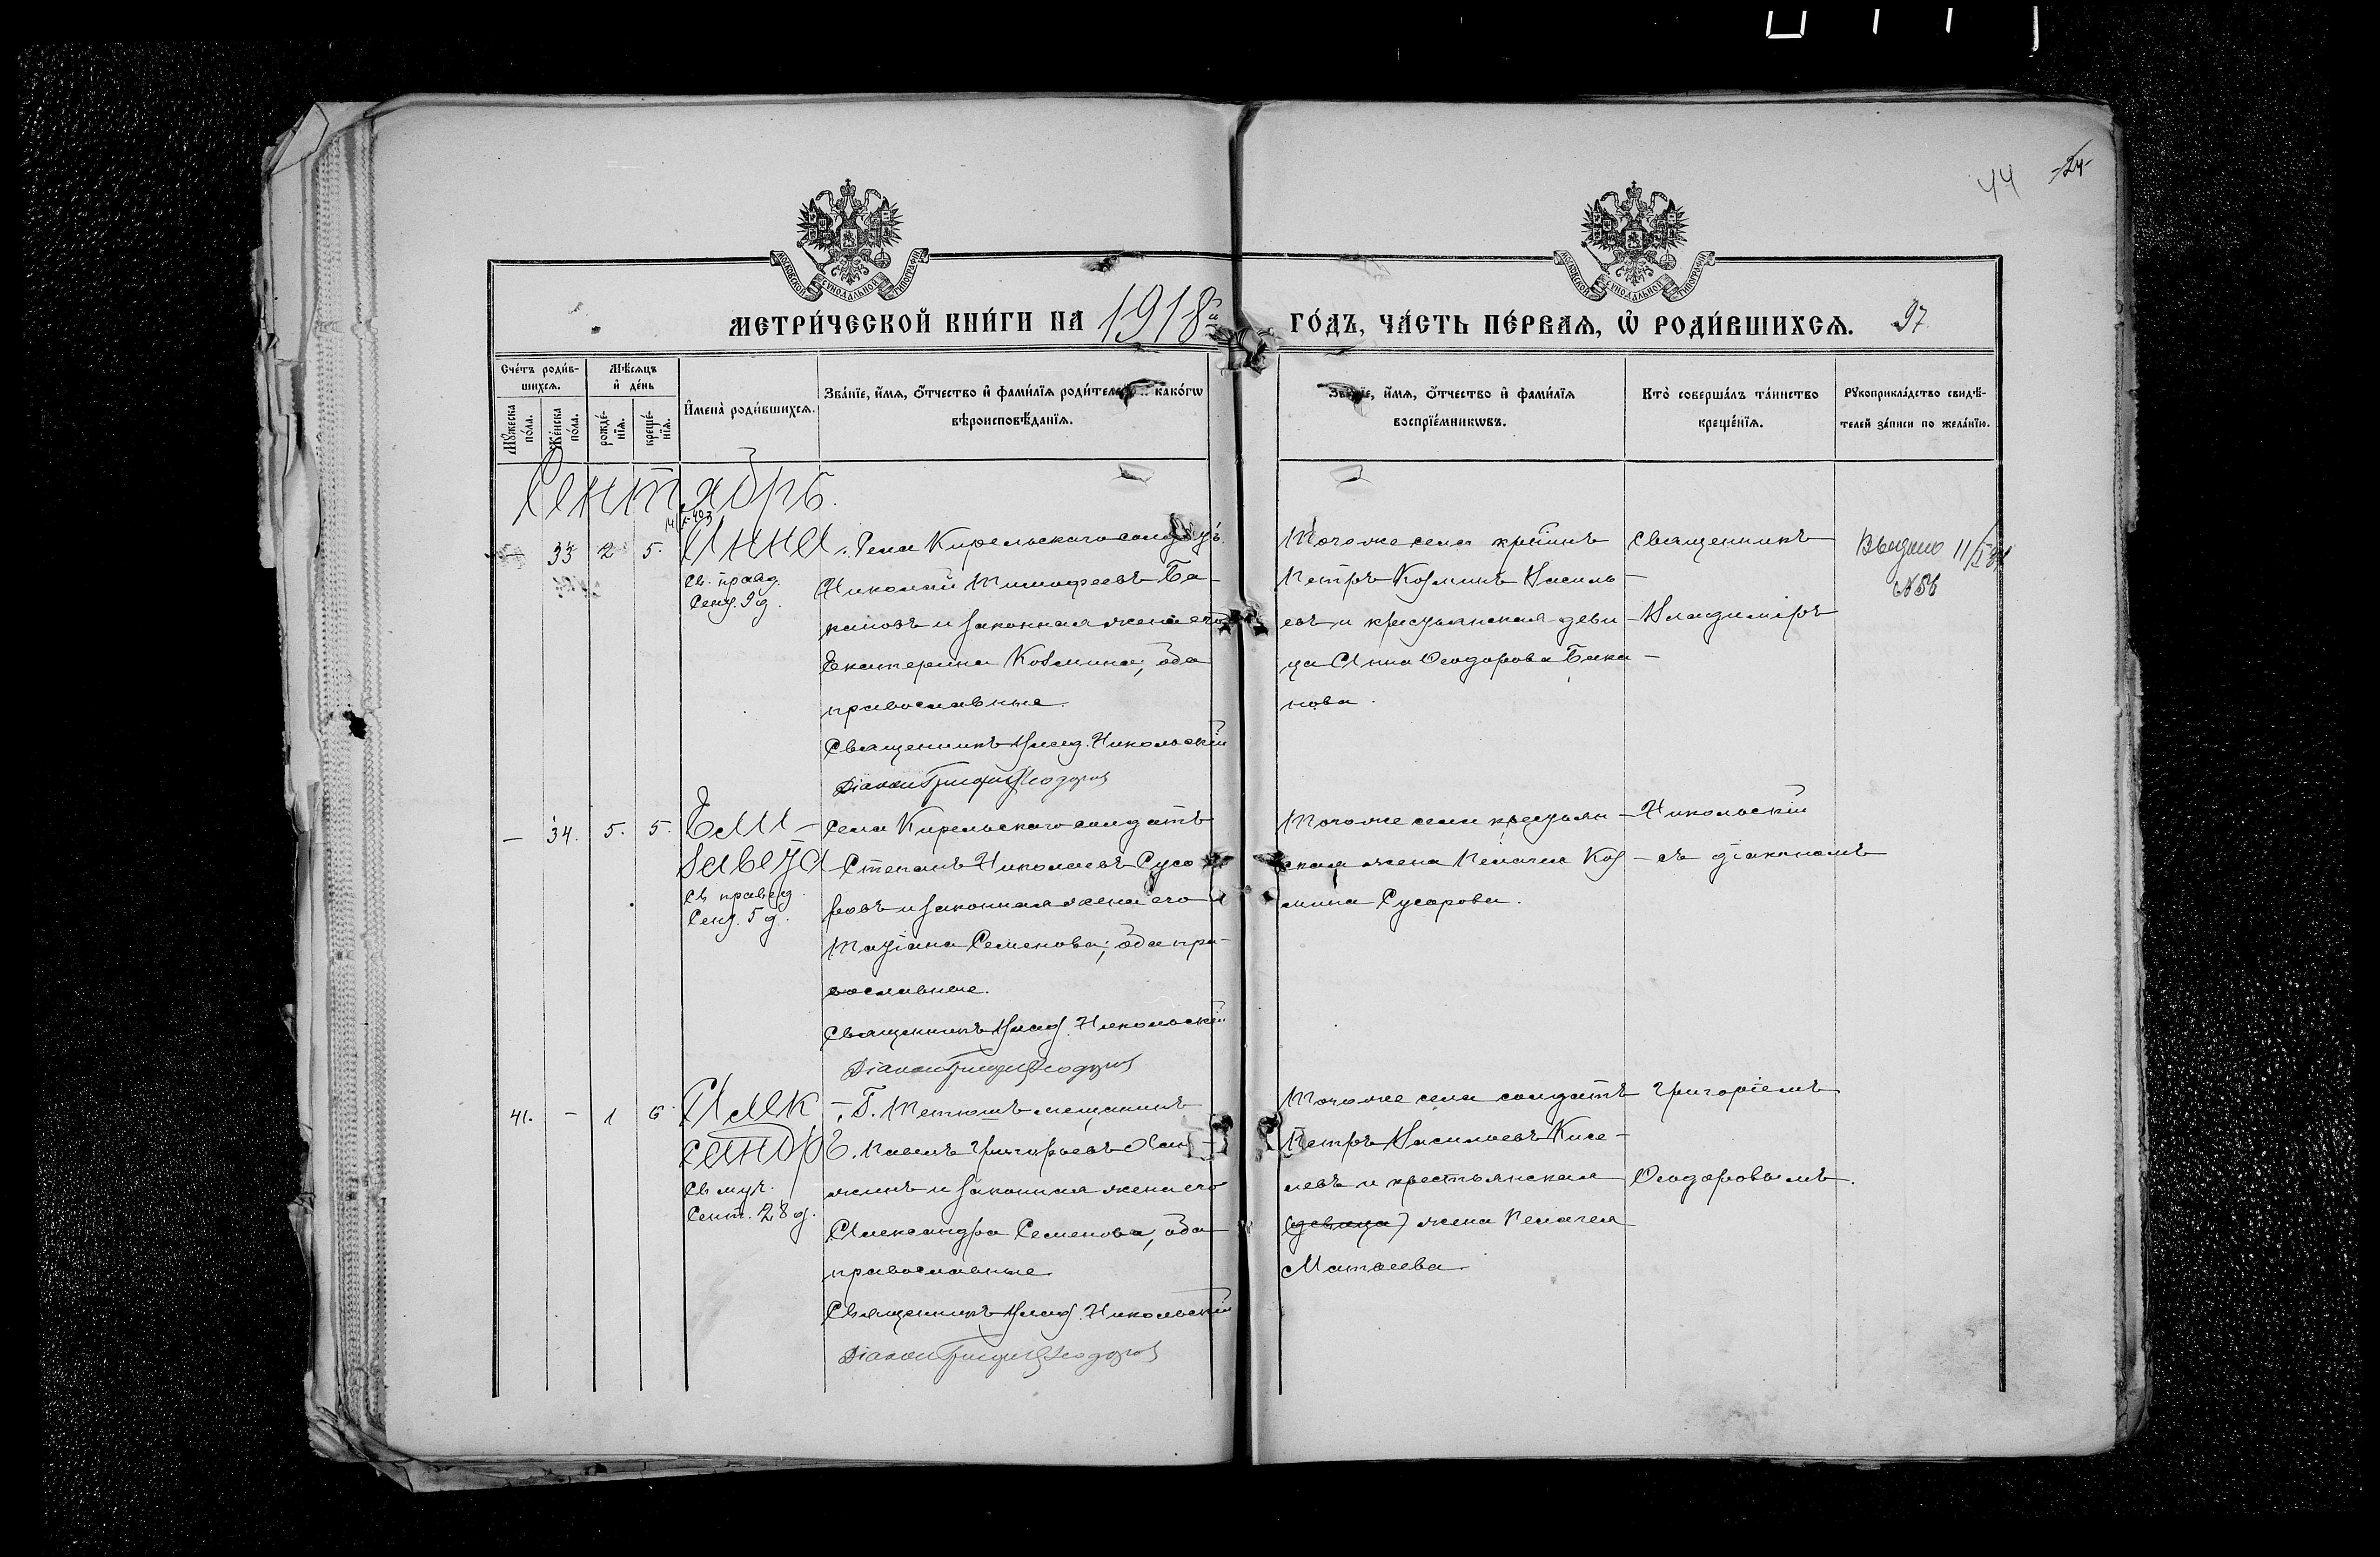 44 24
МЕТРИ́ЧЕСКОЙ КНИ́ГИ НА 1918 ГО́ДЪ, ЧА́СТЬ ПЕ́РВАЯ, Ѡ҆ РОДИ́ВШИХСЯ. 97
Сче́тъ роди́в-
шихся.
Мꙋ́жеска
по́ла.
Же́нска
по́ла.
Мѣ́сяцъ
и҆ де́нь
рожде́-
нїя.
креще́-
нїя.
И҆мена̀ роди́вшихся.
Зва́нїе, и҆́мя, ѻ҆́тчество и҆ фами́лїя роди́телей, како́гѡ
вѣроисповѣ́данїя.
Зва́нїе, и҆́мя, ѻ҆́тчество и҆ фами́лїя
воспрїе́мникѡвъ.
Кто̀ соверша́лъ та́инство
креще́нїя.
Рꙋкоприкла́дство свидѣ́-
телей за́писи по жела́нїю.
Сентябрь.
— 33 2 5. Анна
Св. правд.
Сент. 9 д.
Села Кирельскаго солдатъ
Николай Тимофеевъ Ба-
кановъ и законная жена его
Екатерина Козмина, оба
православные.
Священникъ Влад. Никольскій
Діаконъ Григорій Ѳеодоровъ
Того же села кр-нинъ
Петръ Козминъ Василь-
евъ и крестьянская деви-
ца Анна Ѳеодорова Бака-
нова.
Священникъ
Владиміръ
Выдано 11/I
— 34. 5. 5. Ели-
завета
Св. правед.
Сент. 5 д.
Села Кирельскаго солдатъ
Степанъ Николаевъ Сусо
ровъ и законная жена его
Татіана Семенова; оба пра-
вославные.
Священникъ Влад. Никольскій
Діаконъ Григорій Ѳеодоровъ
Того же села крестьян-
ская жена Пелагея Коз-
мина Сусорова.
Никольскій
съ діакономъ
41. — 1 6 Алек-
сандръ.
Св. муч.
Сент. 28 д.
Г. Тетюшъ мещанинъ
Павелъ Григорьевъ
жинъ и законная жена его
Александра Семенова, оба
православные
Священникъ Влад. Никольскій
Діаконъ Григорій Ѳеодоровъ
Того же села солдатъ
Петръ Васильевъ Кисе-
левъ и крестьянская
(девица) жена Пелагея
Матвеева.
Григоріемъ
Ѳеодоровымъ.